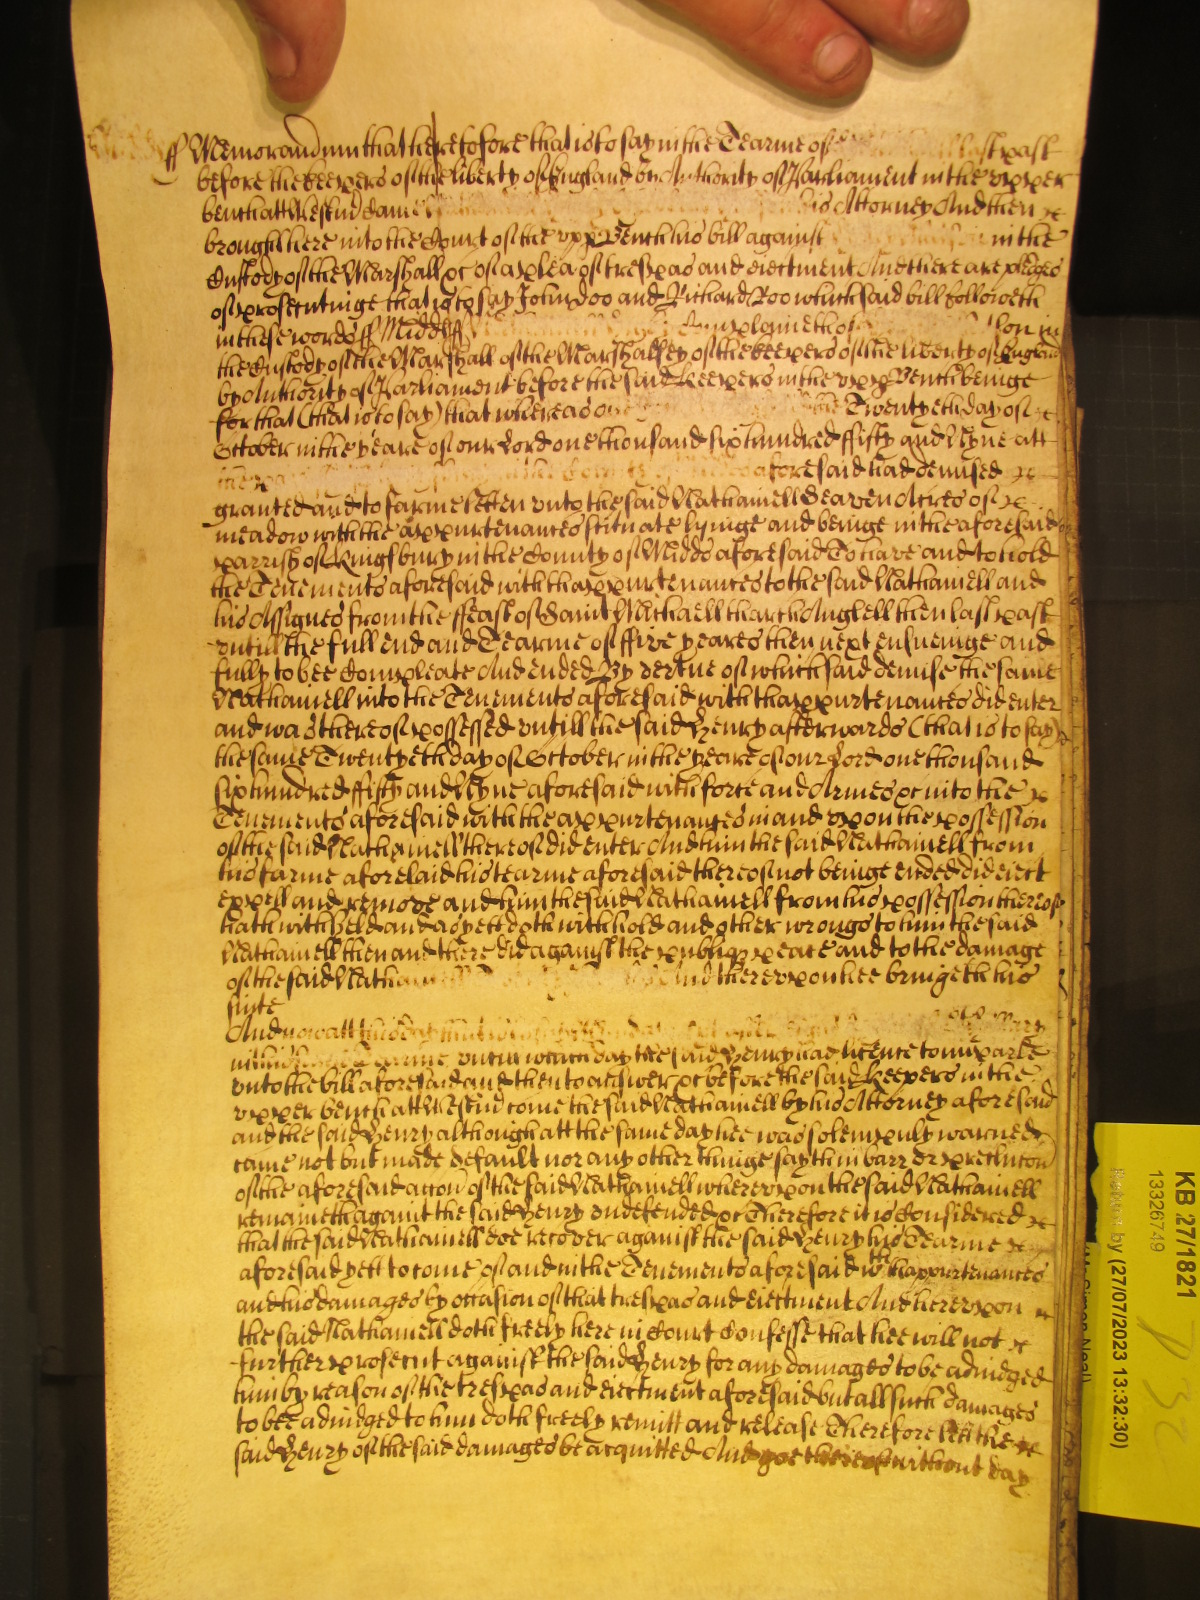 ff Memorandum that heretofore that is to say in the Tearme of last past
before the keepers of the liberty of England by Authority of Parliament in the upper
bench att Westm̃ Came his Attorney And then
brought here into the Court of the upp Bench his bill against in the
Custody of the Marshall &c of a plea of trespas and eiectment And there are pledges
of prosecutinge that is to say John doo and Richard Roo which said bill followeth
in these words ff Midds ff Complaineth of on in
the Custody of the Marshall of the Marshalsey of the keepers of the liberty of England
by Authority of Parliament before the said keepers in the upp Bench beinge
for that (that is to say) that whereas one the Twentyeth day of
October in the yeare of our Lord one thousand six hundred ffifty and Nyne att
aforesaid had demised
granted and to farme letten unto the said Nathaniell Seaven Acres of
meadow with the appurtenances scituate lyinge and beinge in the aforesaid
parrish of Kingsbury in the County of Midds aforesaid To have and to hold
the Tenements aforesaid with thappurtenances to the said Nathaniell and
his Assignes from the ffeast of Saint Michaell tharchAngell then last past
untill the full end and Tearme of ffive yeares then next ensueinge and
fully to bee Compleate And ended By vertue of which said demise the same
Nathaniell into the Tenements aforesaid with thappurtenances did enter
and was thereof possessed untill the said Henry afterwards (that is to say)
the same Twentyeth day of October in the yeare of our Lord one thousand
six hundred ffifty and Nyne aforesaid with force and Armes &c into the
Tenements aforesaid with the appurtenances in and upon the possession
of the said Nathaniell thereof did enter And him the said Nathaniell from
his farme aforesaid his tearme aforesaid thereof not beinge ended did eiect
expell and remove and him the said Nathaniell from his possession thereof
hath withheld and as yett doth withhold and other wrongs to him the said
Nathaniell then and there did against the publiq peace and to the damage
of the said Nathaniell And thereupon hee bringeth his
suite
And now att this day
untill which day the said Henry had licence to imparle
unto the bill aforesaid and then to answer &c before the said keepers in the
upper bench att Westm̃ come the said Nathaniell by his Attorney aforesaid
and the said Henry although att the same day hee was solempnly warned
came not but made default nor any other thinge sayth in barr or preclucõn
of the aforesaid accõn of the said Nathaniell whereupon the said Nathaniell
remaineth against the said Henry undefended &c Therefore it is Considered
that the said Nathaniell doe recover against the said Henry his Tearme
aforesaid yett to come of and in the Tenements aforesaid wth thappurtenances
and his damages by occasion of that trespas and eiectment And hereupon
the said Nathaniell doth freely here in Court Confesse that hee will not
further prosecut against the said Henry for any damages to be adiudged
him by reason of the trespas and eiectment aforesaid but all such damages
to bee adiudged to him doth freely remitt and release Therefore lett the
said Henry of the said damages be acquitted And goe thereof without day
KB 27/1821
13326749
by (27/07/2023 13:32:30)